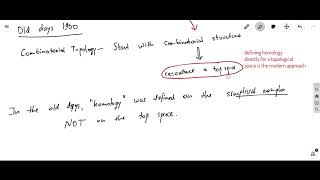 Old days 1900
Combinatorial Topology - Start with combinatorial structure
reconstruct a top space
defining homology
directly for a topological
space is the modern approach
In the old days, "homology" was defined on the simplicial complex
NOT on the top space.